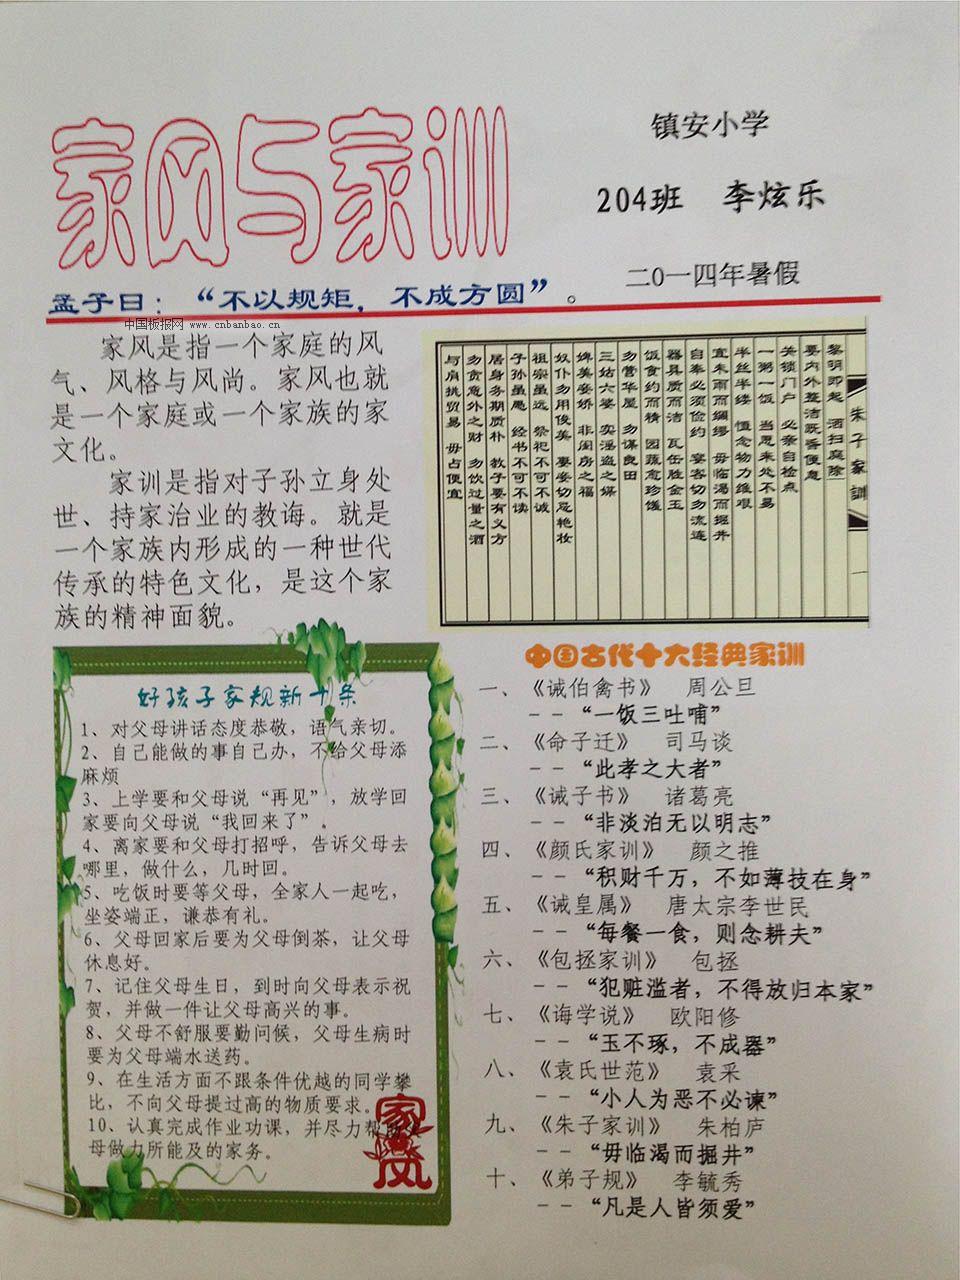 家风与家训
镇安小学
204班 李炫乐
二0一四年暑假
孟子曰：“不以规矩，不成方圆”。
中国板报网 www.cnbanbao.cn
家风是指一个家庭的风
气、风格与风尚。家风也就
是一个家庭或一个家族的家
文化。
家训是指对子孙立身处
世、持家治业的教诲。就是
一个家族内形成的一种世代
传承的特色文化，是这个家
族的精神面貌。
朱子家训
一
黎明即起 洒扫庭除
要内外整洁既昏便息
关锁门户 必亲自检点
一粥一饭 当思来处不易
半丝半缕 恒念物力维艰
宜未雨而绸缪 毋临渴而掘井
自奉必须俭约 宴客切勿流连
器具质而洁 瓦缶胜金玉
饭食约而精 园蔬愈珍馐
勿营华屋 勿谋良田
三姑六婆 实淫盗之媒
婢美妾娇 非闺房之福
奴仆勿用俊美 妻妾切忌艳妆
祖宗虽远 祭祀不可不诚
子孙虽愚 经书不可不读
居身务期质朴 教子要有义方
勿贪意外之财 勿饮过量之酒
与肩挑贸易 毋占便宜
好孩子家规新十条
1、对父母讲话态度恭敬，语气亲切。
2、自己能做的事自己办，不给父母添
麻烦
3、上学要和父母说“再见”，放学回
家要向父母说“我回来了”。
4、离家要和父母打招呼，告诉父母去
哪里，做什么，几时回。
5、吃饭时要等父母，全家人一起吃，
坐姿端正，谦恭有礼。
6、父母回家后要为父母倒茶，让父母
休息好。
7、记住父母生日，到时向父母表示祝
贺，并做一件让父母高兴的事。
8、父母不舒服要勤问候，父母生病时
要为父母端水送药。
9、在生活方面不跟条件优越的同学攀
比，不向父母提过高的物质要求。
10、认真完成作业功课，并尽力帮
母做力所能及的家务。
家风
中国古代十大经典家训
一、《诫伯禽书》 周公旦
--“一饭三吐哺”
二、《命子迁》 司马谈
--“此孝之大者”
三、《诫子书》 诸葛亮
--“非淡泊无以明志”
四、《颜氏家训》 颜之推
--“积财千万，不如薄技在身”
五、《诫皇属》 唐太宗李世民
--“每餐一食，则念耕夫”
六、《包拯家训》 包拯
--“犯赃滥者，不得放归本家”
七、《诲学说》 欧阳修
--“玉不琢，不成器”
八、《袁氏世范》 袁采
--“小人为恶不必谏”
九、《朱子家训》 朱柏庐
--“毋临渴而掘井”
十、《弟子规》 李毓秀
--“凡是人皆须爱”